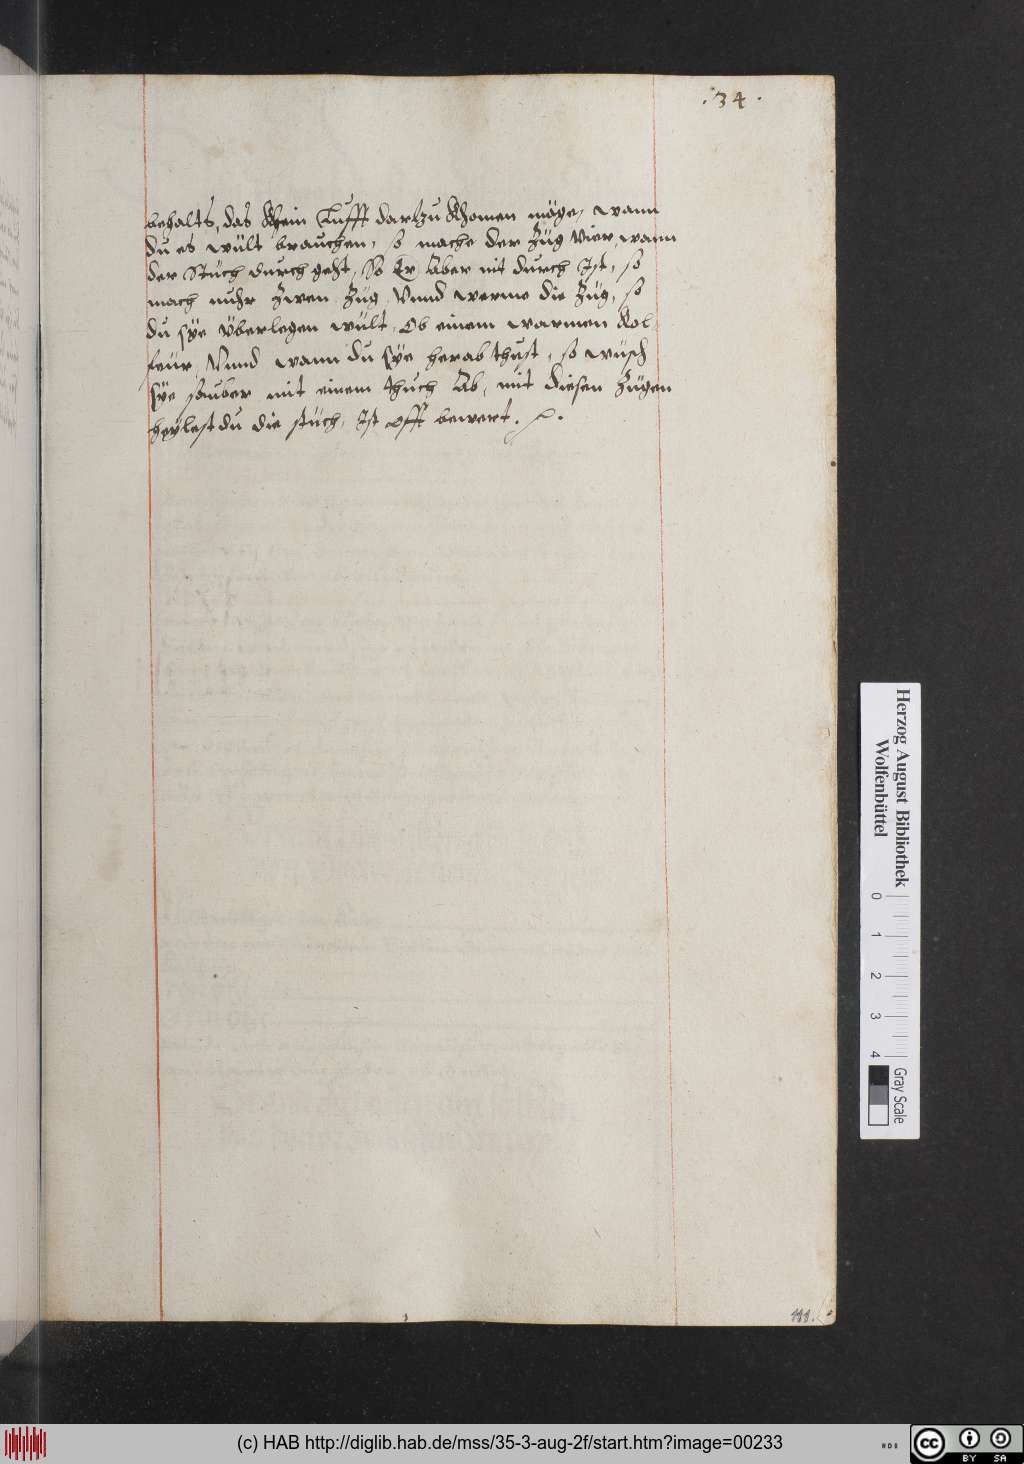 .34.
behalts, das Khein Lufft dartzu Khomen möge, wann
du es wült brauchen, so mache der Züg Vier, wann
der Stuch durch geht, So Er Aber nit durch Ist, so
mach nuhr Zwen Züg, Vnnd werme die Züg, so
du sÿe Vberlegen wült, Ob einem warmen Kol
feur, Vnnd wann du sÿe herab thust, so wüsch
sÿe sauber mit einem thuch Ab, mit diesen Zügen
heÿlest du die stüch, Ist offt bewert.
111.
Herzog August Bibliothek
Wolfenbüttel
0 1 2 3 4
Gray Scale
(c) HAB http://diglib.hab.de/mss/35-3-aug-2f/start.htm?image=00233
cc BY SA